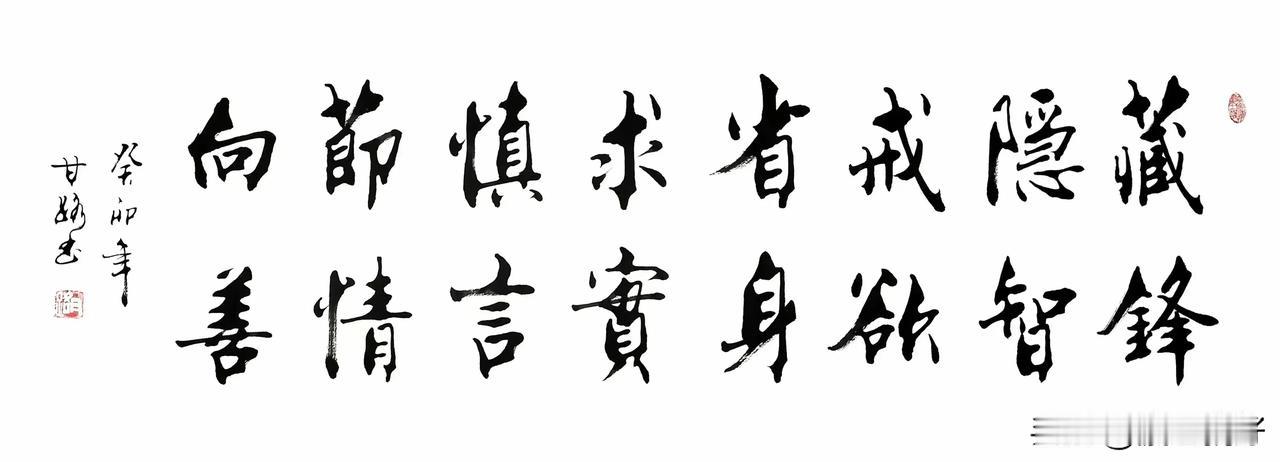 藏鋒
隱智
戒欲
省身
求實
慎言
節情
向善
癸卯年
甘路书